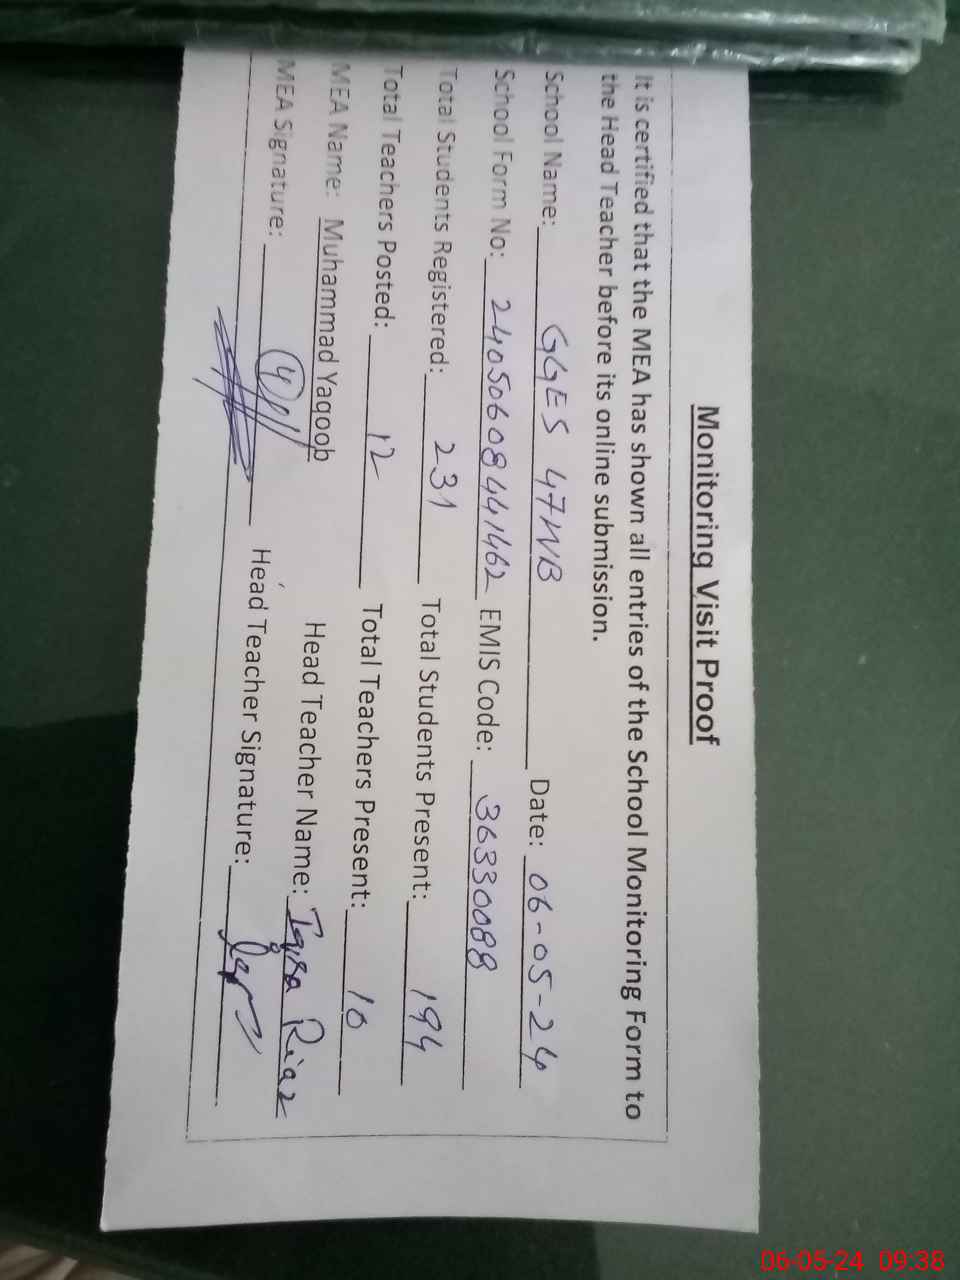 Monitoring Visit Proof
It is certified that the MEA has shown all entries of the School Monitoring Form to
the Head Teacher before its online submission.
School Name: GGES 47WB Date: 06-05-24
School Form No: 240506084441462 EMIS Code: 36330088
Total Students Registered: 231 Total Students Present: 194
Total Teachers Posted: 12 Total Teachers Present: 10
MEA Name: Muhammad Yaqoob Head Teacher Name: Iqra Riaz
MEA Signature: Head Teacher Signature:
06-05-24 09:38